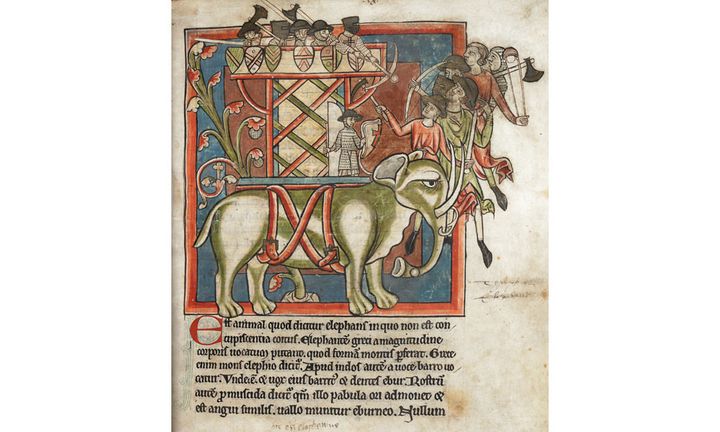 Est animal quod dicitur elephans in quo non est con
cupiscentia coitus. Elephantē greci a magnitudine
corporis vocatum putant. quod formā montis p̄ferat. Grece
enim mons elephio dicit᷑. Apud indos autē a voce barro vo
catur. Unde ⁊ vox eius barrit᷑ ⁊ dentes ebur. Rostrū
autē ꝓmuscida dicit᷑ qm̄ illo pabula ori admovet ⁊
est angui similis. vallo munitur eburneo. Nullum